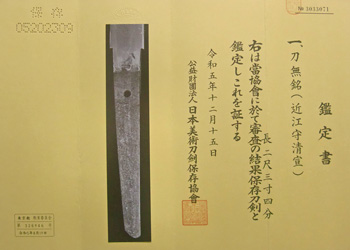 № 3032071
鑑定書
一、刀 無銘(近江守清宣)
長 二尺三寸四分
右は當協會に於て審査の結果保存刀剣と
鑑定しこれを証する
令和五年十二月十五日
公益財団法人 日本美術刀剣保存協會
保存
05202309